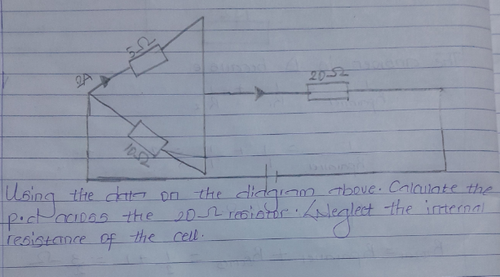 5Ω
2A
20Ω
10Ω
Using the data on the diagram above. Calculate the
p.d across the 20-Ω resistor. (Neglect the internal
resistance of the cell.